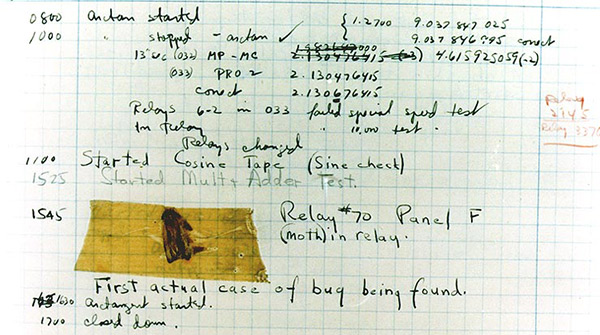 0800 Arctan started
1.2700 9.037 847 025
1000 " stopped - arctan ✓ 9.037 846 995 correct
13"uc (032) MP - MC 2.130476415 (-3) 4.615925059(-2)
(033) PRO 2 2.130476415
correct 2.130676415
Relays 6-2 in 033 failed special speed test
In Relay " 10,000 test.
Relay
2145
Relay 3370
Relays changed
1100 Started Cosine Tape (Sine check)
1525 Started Mult + Adder Test.
1545 Relay #70 Panel F
(moth) in relay.
First actual case of bug being found.
1630 Arctangent started.
1700 closed down.